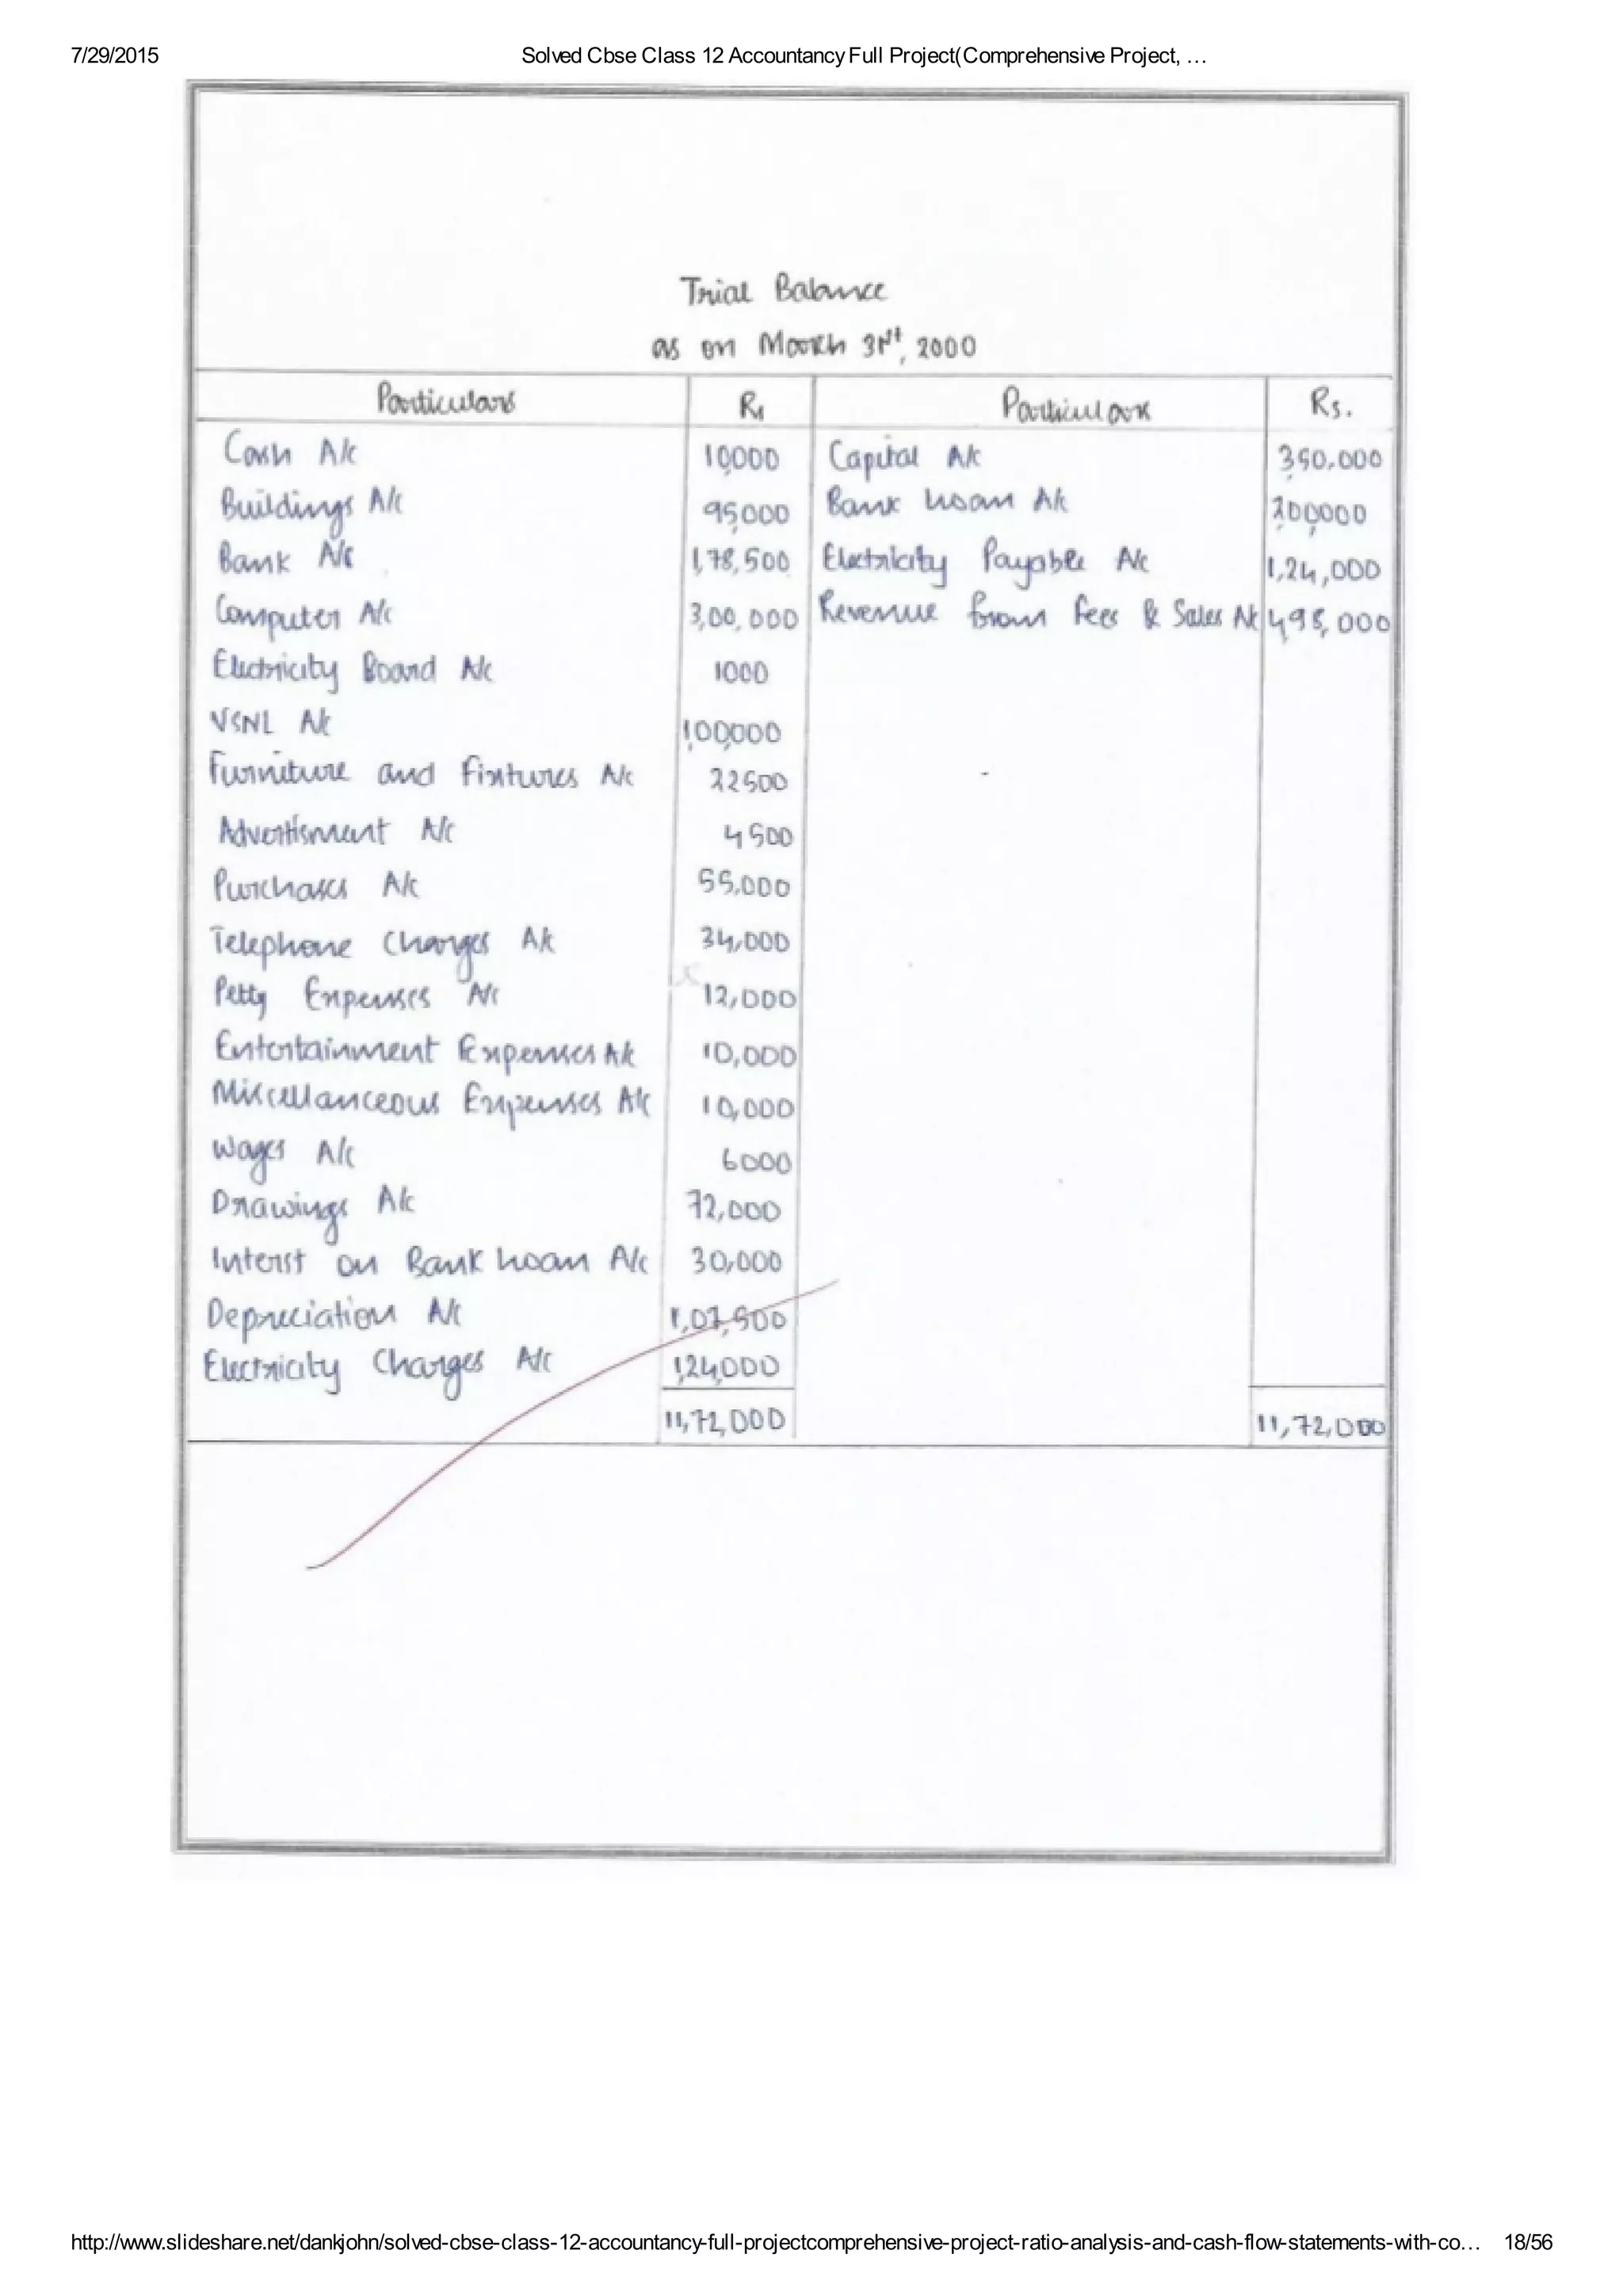 7/29/2015 Solved Cbse Class 12 Accountancy Full Project(Comprehensive Project, …
Trial Balance
as on March 31st, 2000
Particulars Rs Particulars Rs.
Cash A/c 10,000 Capital A/c 3,50,000
Buildings A/c 95,000 Bank Loan A/c 2,00,000
Bank A/c 1,78,500 Electricity Payable A/c 1,24,000
Computer A/c 3,00,000 Revenue from Fees & Sales A/c 4,98,000
Electricity Board A/c 1000
VSNL A/c 1,00,000
Furniture and Fixtures A/c 22500
Advertisment A/c 4500
Purchases A/c 55,000
Telephone Charges A/c 34,000
Petty Expenses A/c 12,000
Entertainment Expenses A/c 10,000
Miscellanceous Expenses A/c 10,000
Wages A/c 6000
Drawings A/c 72,000
Interst on Bank Loan A/c 30,000
Depreciation A/c 1,07,500
Electricity Charges A/c 1,24,000
11,72,000 11,72,000
http://www.slideshare.net/dankjohn/solved-cbse-class-12-accountancy-full-projectcomprehensive-project-ratio-analysis-and-cash-flow-statements-with-co… 18/56